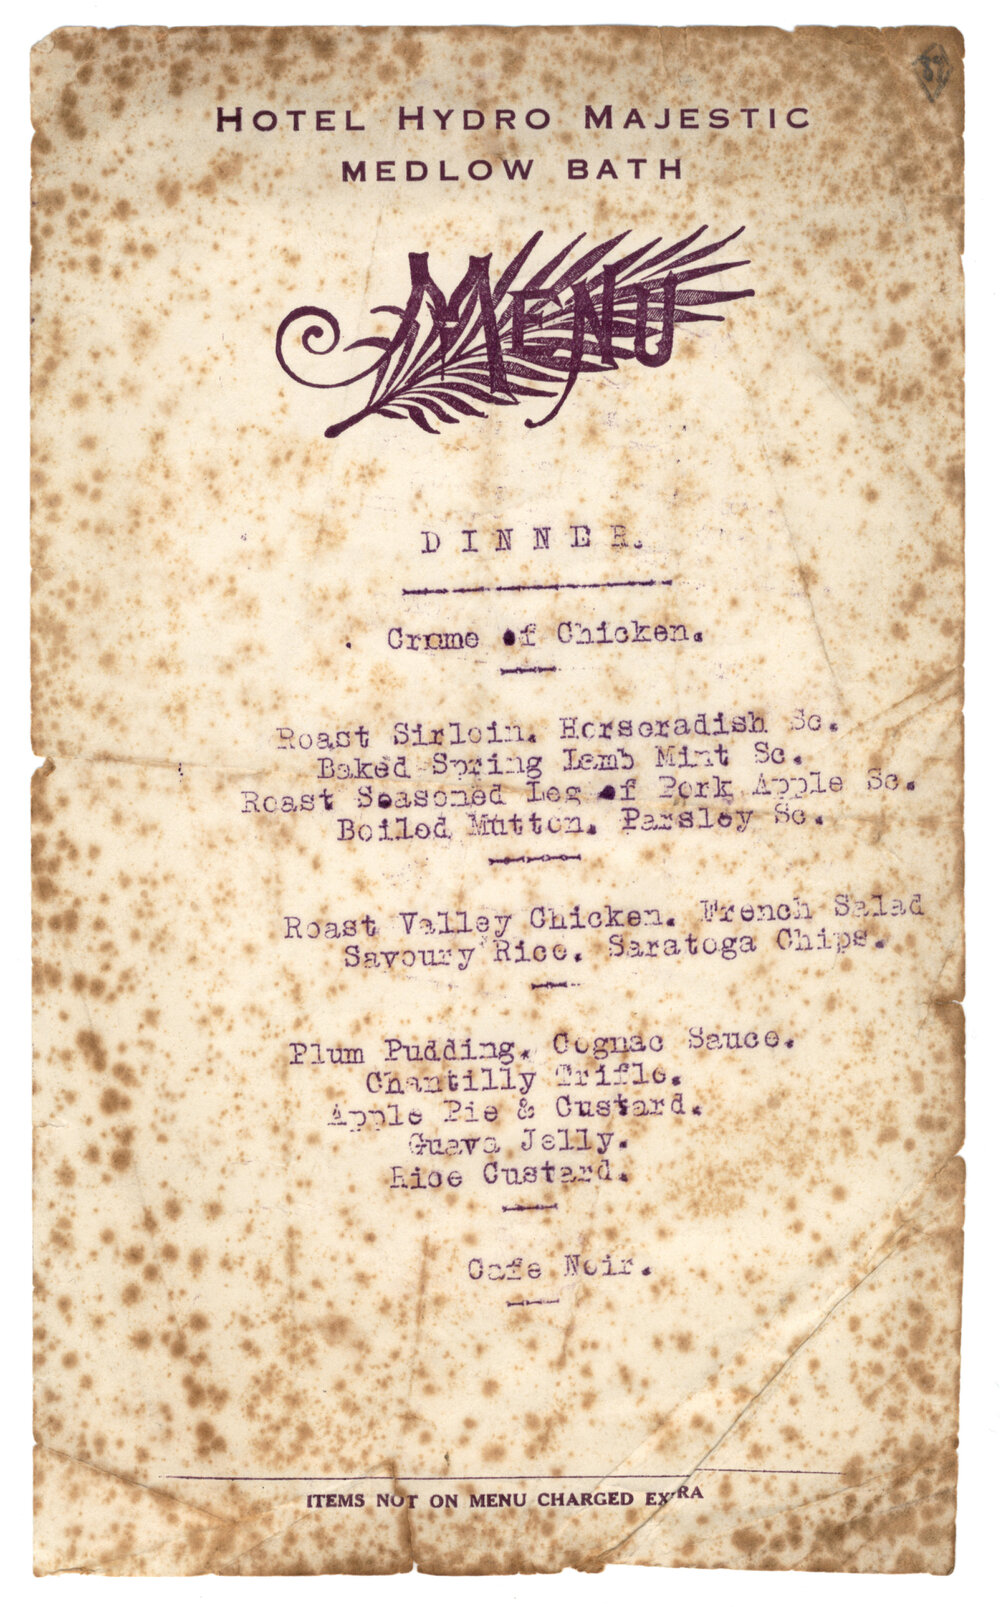 HOTEL HYDRO MAJESTIC
MEDLOW BATH
MENU
DINNER.
Creme of Chicken.
Roast Sirloin. Horseradish Sc.
Baked Spring Lamb Mint Sc.
Roast Seasoned Leg of Pork Apple Sc.
Boiled Mutton. Parsley Sc.
Roast Valley Chicken. French Salad
Savoury Rice. Saratoga Chips.
Plum Pudding. Cognac Sauce.
Chantilly Trifle.
Apple Pie & Custard.
Guava Jelly.
Rice Custard.
Cafe Noir.
ITEMS NOT ON MENU CHARGED EXTRA